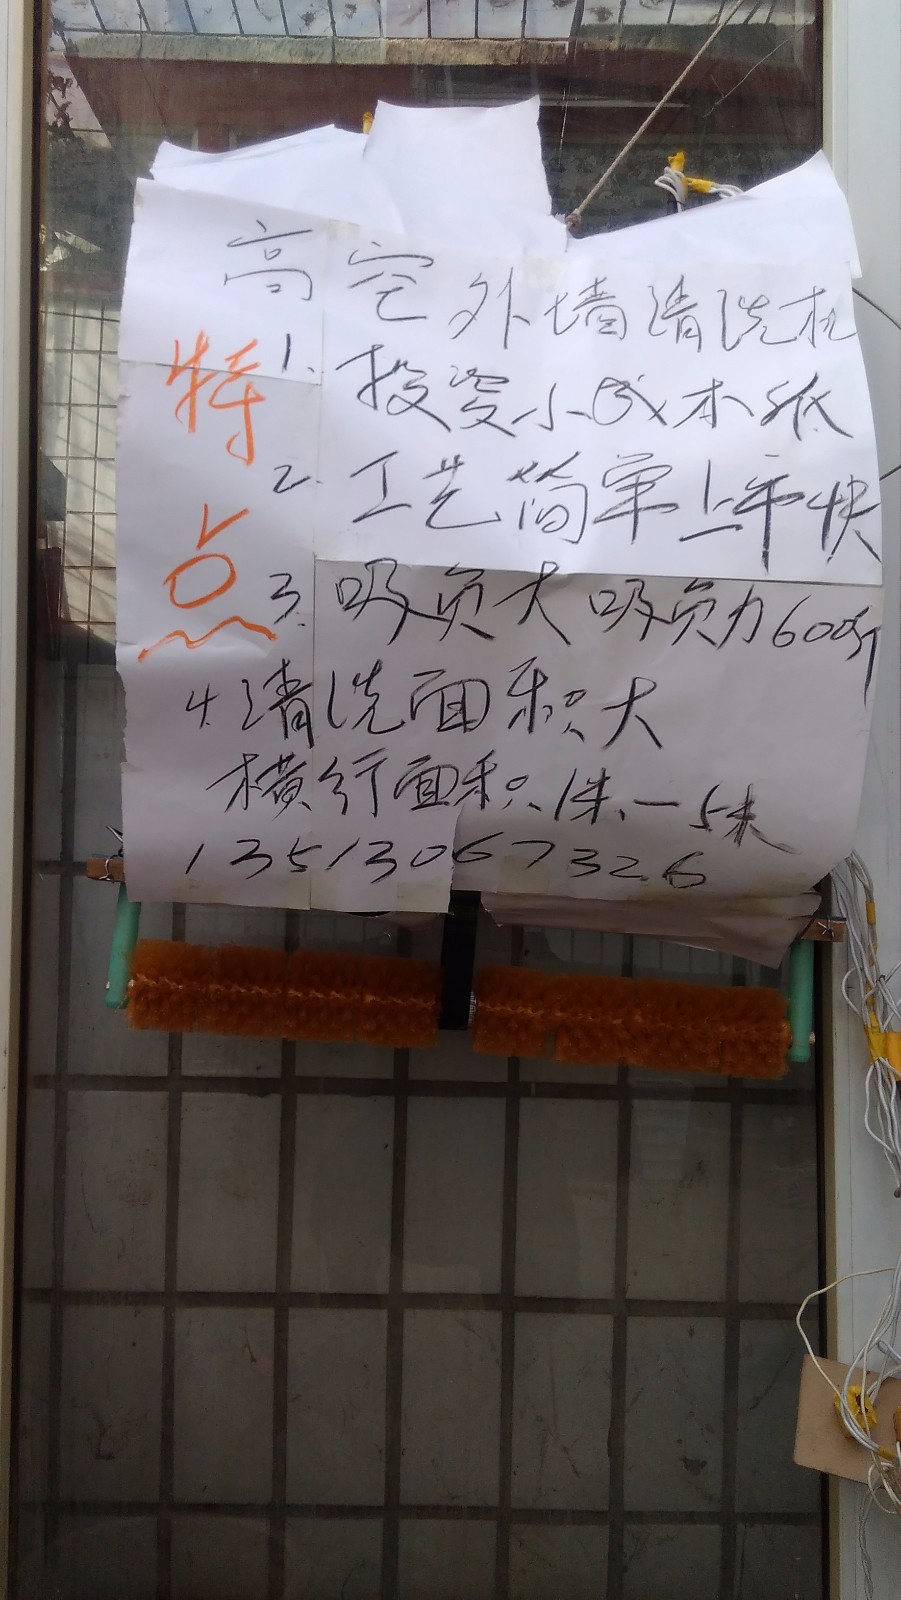 高空外墙清洗机
特点
1.投资小成本低
2.工艺简单上市快
3.吸负大吸负力600斤
4.清洗面积大
横行面积1米一5米
13513067326